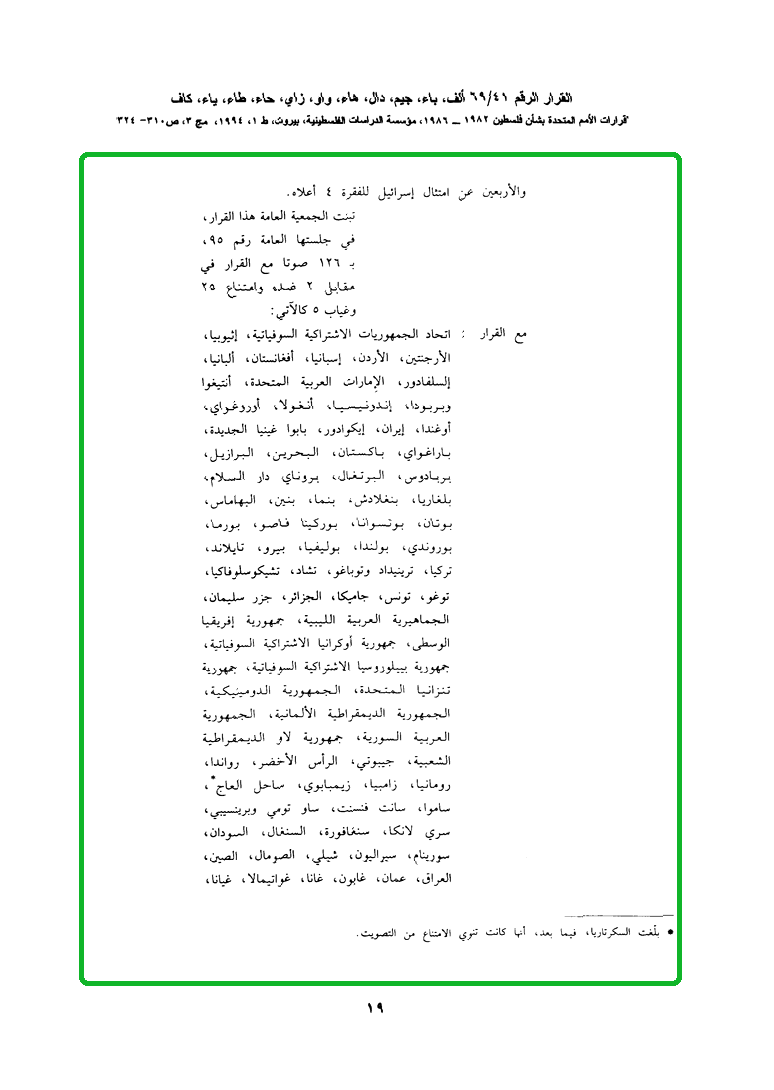 القرار الرقم ٦٩/٤١ ألف، باء، جيم، دال، هاء، واو، زاي، حاء، طاء، ياء، كاف
"قرارات الأمم المتحدة بشأن فلسطين ١٩٨٢ ــ ١٩٨٦، مؤسسة الدراسات الفلسطينية، بيروت، ط ١، ١٩٩٤، مج ٣، ص٣١٠- ٣٢٤
والأربعين عن امتثال إسرائيل للفقرة ٤ أعلاه.
تبنت الجمعية العامة هذا القرار،
في جلستها العامة رقم ٩٥،
بـ ١٢٦ صوتا مع القرار في
مقابل ٢ ضده وامتناع ٢٥
وغياب ٥ كالآتي:
مع القرار : اتحاد الجمهوريات الاشتراكية السوفياتية، إثيوبيا،
الأرجنتين، الأردن، إسبانيا، أفغانستان، ألبانيا،
إلسلفادور، الإمارات العربية المتحدة، أنتيغوا
وبربودا، إندونيسيا، أنغولا، أوروغواي،
أوغندا، إيران، إيكوادور، بابوا غينيا الجديدة،
باراغواي، باكستان، البحرين، البرازيل،
بربادوس، البرتغال، بروناي دار السلام،
بلغاريا، بنغلادش، بنما، بنين، البهاماس،
بوتان، بوتسوانا، بوركينا فاصو، بورما،
بوروندي، بولندا، بوليفيا، بيرو، تايلاند،
تركيا، ترينيداد وتوباغو، تشاد، تشيكوسلوفاكيا،
توغو، تونس، جاميكا، الجزائر، جزر سليمان،
الجماهيرية العربية الليبية، جمهورية إفريقيا
الوسطى، جمهورية أوكرانيا الاشتراكية السوفياتية،
جمهورية بييلوروسيا الاشتراكية السوفياتية، جمهورية
تنزانيا المتحدة، الجمهورية الدومينيكية،
الجمهورية الديمقراطية الألمانية، الجمهورية
العربية السورية، جمهورية لاو الديمقراطية
الشعبية، جيبوتي، الرأس الأخضر، رواندا،
رومانيا، زامبيا، زيمبابوي، ساحل العاج*،
ساموا، سانت فنسنت، ساو تومي وبرينسيبي،
سري لانكا، سنغافورة، السنغال، السودان،
سورينام، سيراليون، شيلي، الصومال، الصين،
العراق، عمان، غابون، غانا، غواتيمالا، غيانا،
● بلّغت السكرتاريا، فيما بعد، أنها كانت تنوي الامتناع من التصويت.
١٩